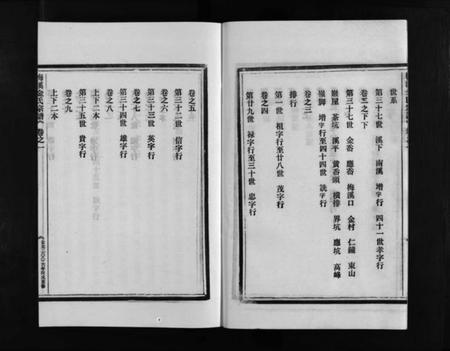 世系
第三十七世 溪下 南溪 增字行 四十一世孝字行
卷三之下下
第三十七世 金畚 應畚 梅溪口 金村 仁鋪 東山
嶺尾 茶坑 溪平 黃畚頭 橫排 界坑 應坑 高峰
嶺脚 增字行至四十四世 洗字行
卷之三
排行
第一世 祖字行至廿八世 茂字行
卷之四
第廿九世 禄字行至三十世 忠字行
卷之五
第三十二世 信字行
卷之六
第三十三世 英字行
卷之七
第三十四世 雄字行
卷之八
上下二本
第三十五世 貴字行
卷之九
上下二本
梅溪金氏宗譜 卷之一